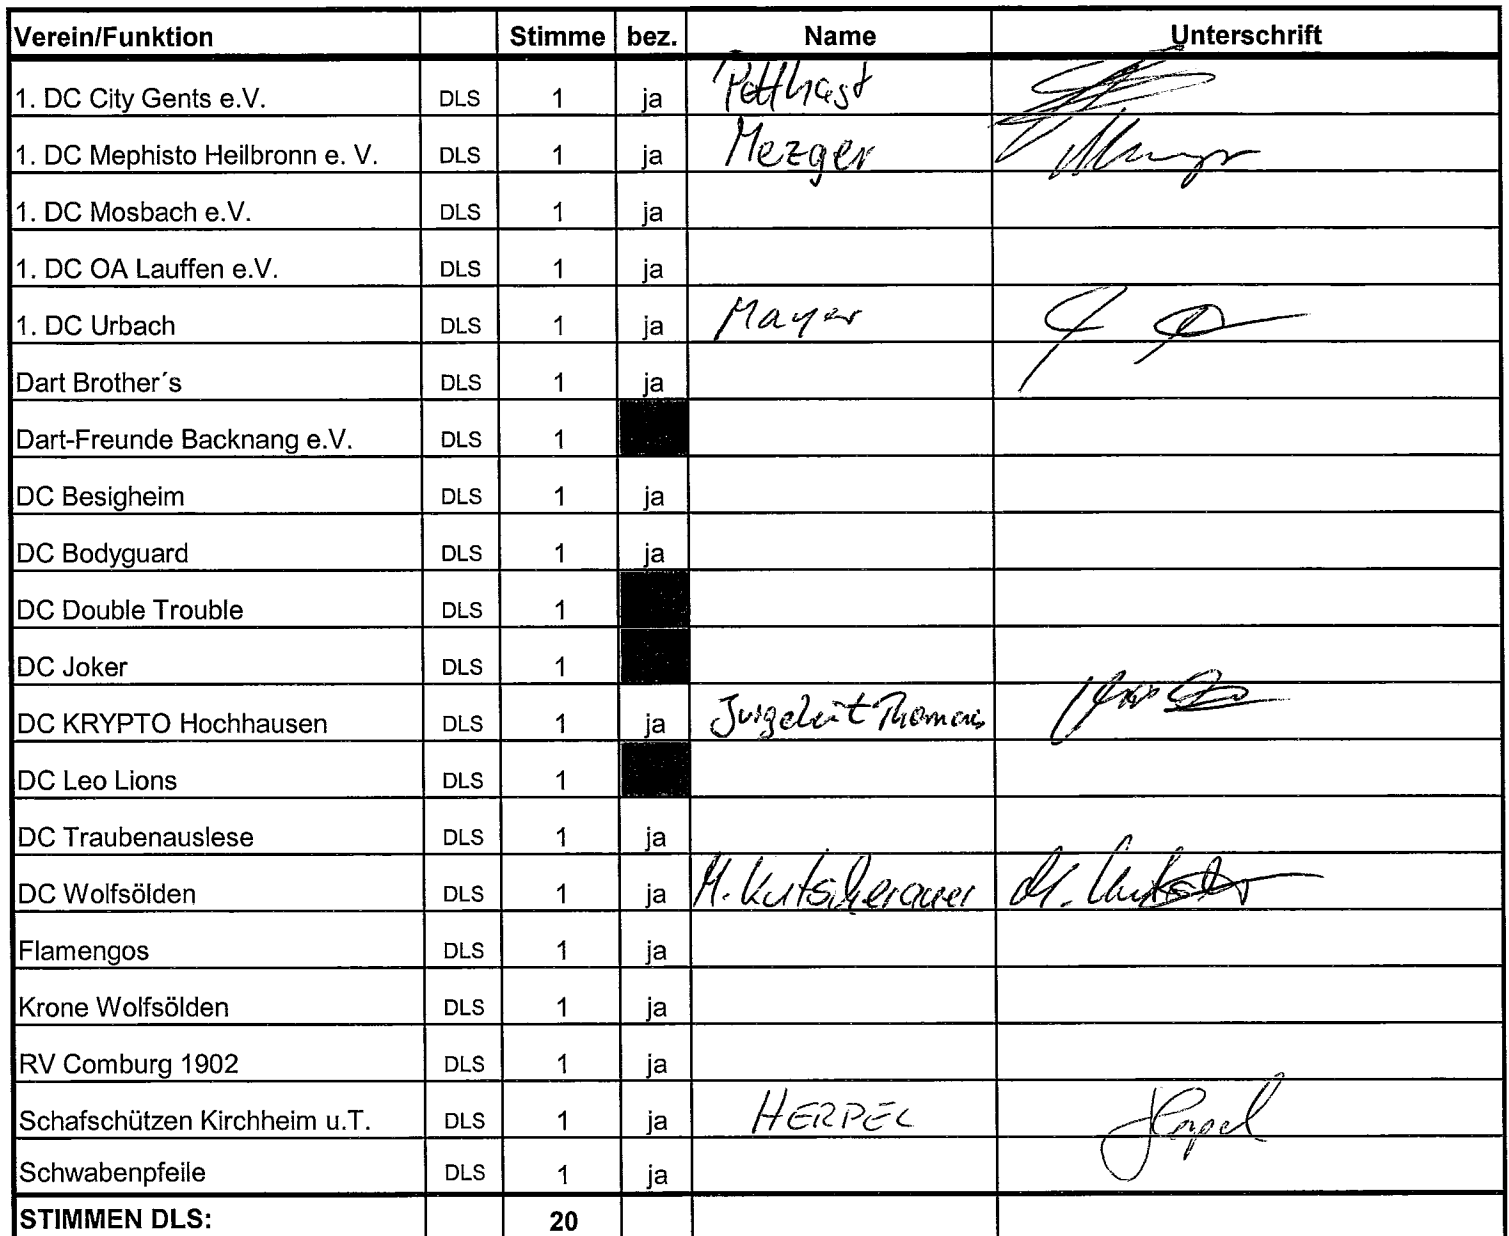 Verein/Funktion Stimme bez. Name Unterschrift
1. DC City Gents e.V. DLS 1 ja Potthast
1. DC Mephisto Heilbronn e. V. DLS 1 ja Mezger
1. DC Mosbach e.V. DLS 1 ja
1. DC OA Lauffen e.V. DLS 1 ja
1. DC Urbach DLS 1 ja Mayer
Dart Brother´s DLS 1 ja
Dart-Freunde Backnang e.V. DLS 1
DC Besigheim DLS 1 ja
DC Bodyguard DLS 1 ja
DC Double Trouble DLS 1
DC Joker DLS 1
DC KRYPTO Hochhausen DLS 1 ja Thomas
DC Leo Lions DLS 1
DC Traubenauslese DLS 1 ja
DC Wolfsölden DLS 1 ja M. Kutscherauer M.
Flamengos DLS 1 ja
Krone Wolfsölden DLS 1 ja
RV Comburg 1902 DLS 1 ja
Schafschützen Kirchheim u.T. DLS 1 ja HERPEL Herpel
Schwabenpfeile DLS 1 ja
STIMMEN DLS: 20